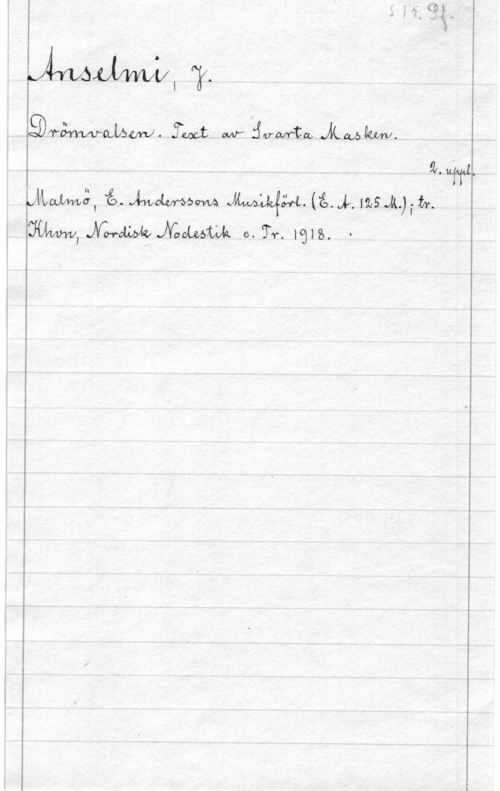 S1k. Pf.
Anselmi, J.
Drömvalsen. Text av Svarta Masken.
2. uppl.
Malmö, E. Anderssons Musikförl. (E. A. 125 M.); tr.
Khvn, Nordisk Nodestik o. Tr. 1918.